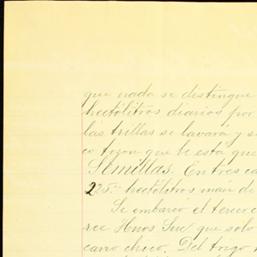 que nada se destingue
hectólitros diarios por
las trillas se lavará y se
o trzon que le está que
Semillas. En tres ca
275 hectólitros mais de
Se embarcó el tercer c
ree Hnos Sue que solo
carro choco. Del trigo h